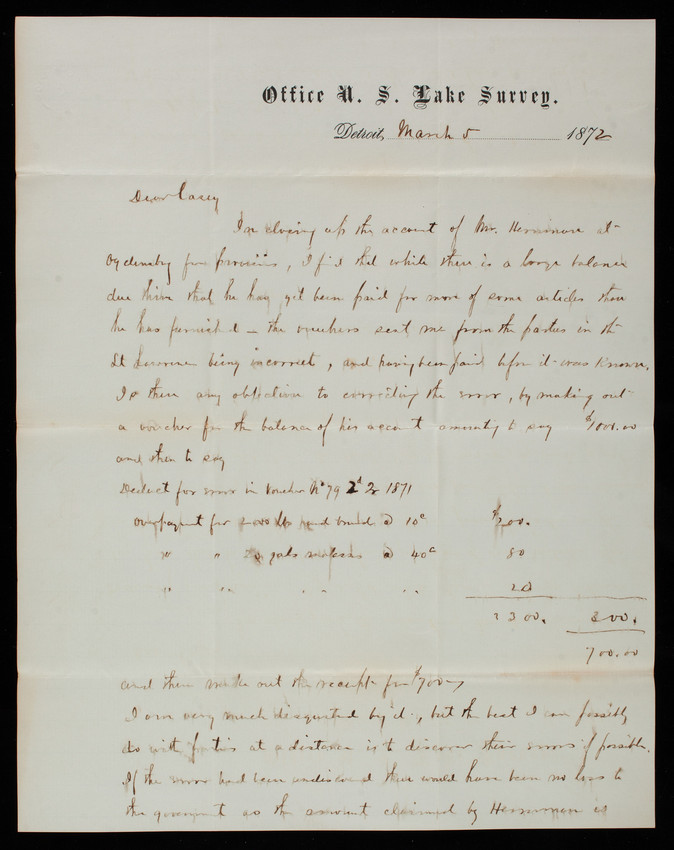 Office U. S. Lake Survey.
Detroit, March 5 1872
Dear Casey
In closing up the account of Mr. at
for provisions, I find that while there is a large balance
due him that he has yet been paid for more of some articles than
he has furnished – the vouchers sent me from the parties in the
St being incorrect, and having been paid before it was known.
Is there any objection to correcting the error, by making out
a voucher for the balance of his account amounting to say $1000.00
and then to say
Deduct for error in Voucher No 79 2d 1871
overpayment for @ 10c $200.
" " gals molasses @ 40c 80
" " " " 20
300. 300.
700.00
and then make out the receipt for $700
I am very much disgusted by it, but the best I can possibly
do with parties at a distance is to discover their errors if possible.
If the error had been undiscovered there would have been no loss to
the government as the amount claimed by is